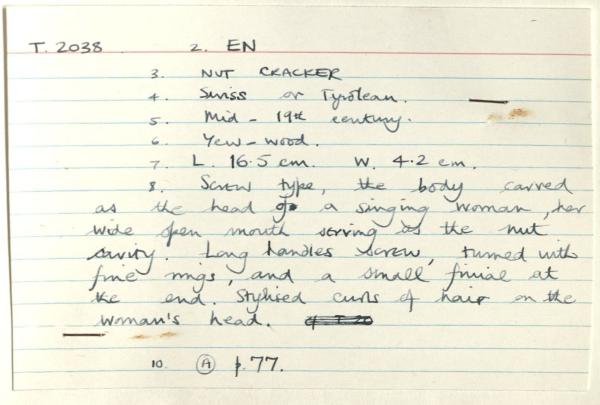 T. 2038 2. EN
3. NUT CRACKER
4. Swiss or Tyrolean.
5. Mid-19th century.
6. Yew-wood.
7. L. 16.5 cm. W. 4.2 cm.
8. Screw type, the body carved
as the head of a singing woman, her
wide open mouth serving as the nut
cavity. Long handles screw, turned with
fine rings, and a small finial at
the end. Stylised curls of hair on the
woman's head.
10. A p.77.